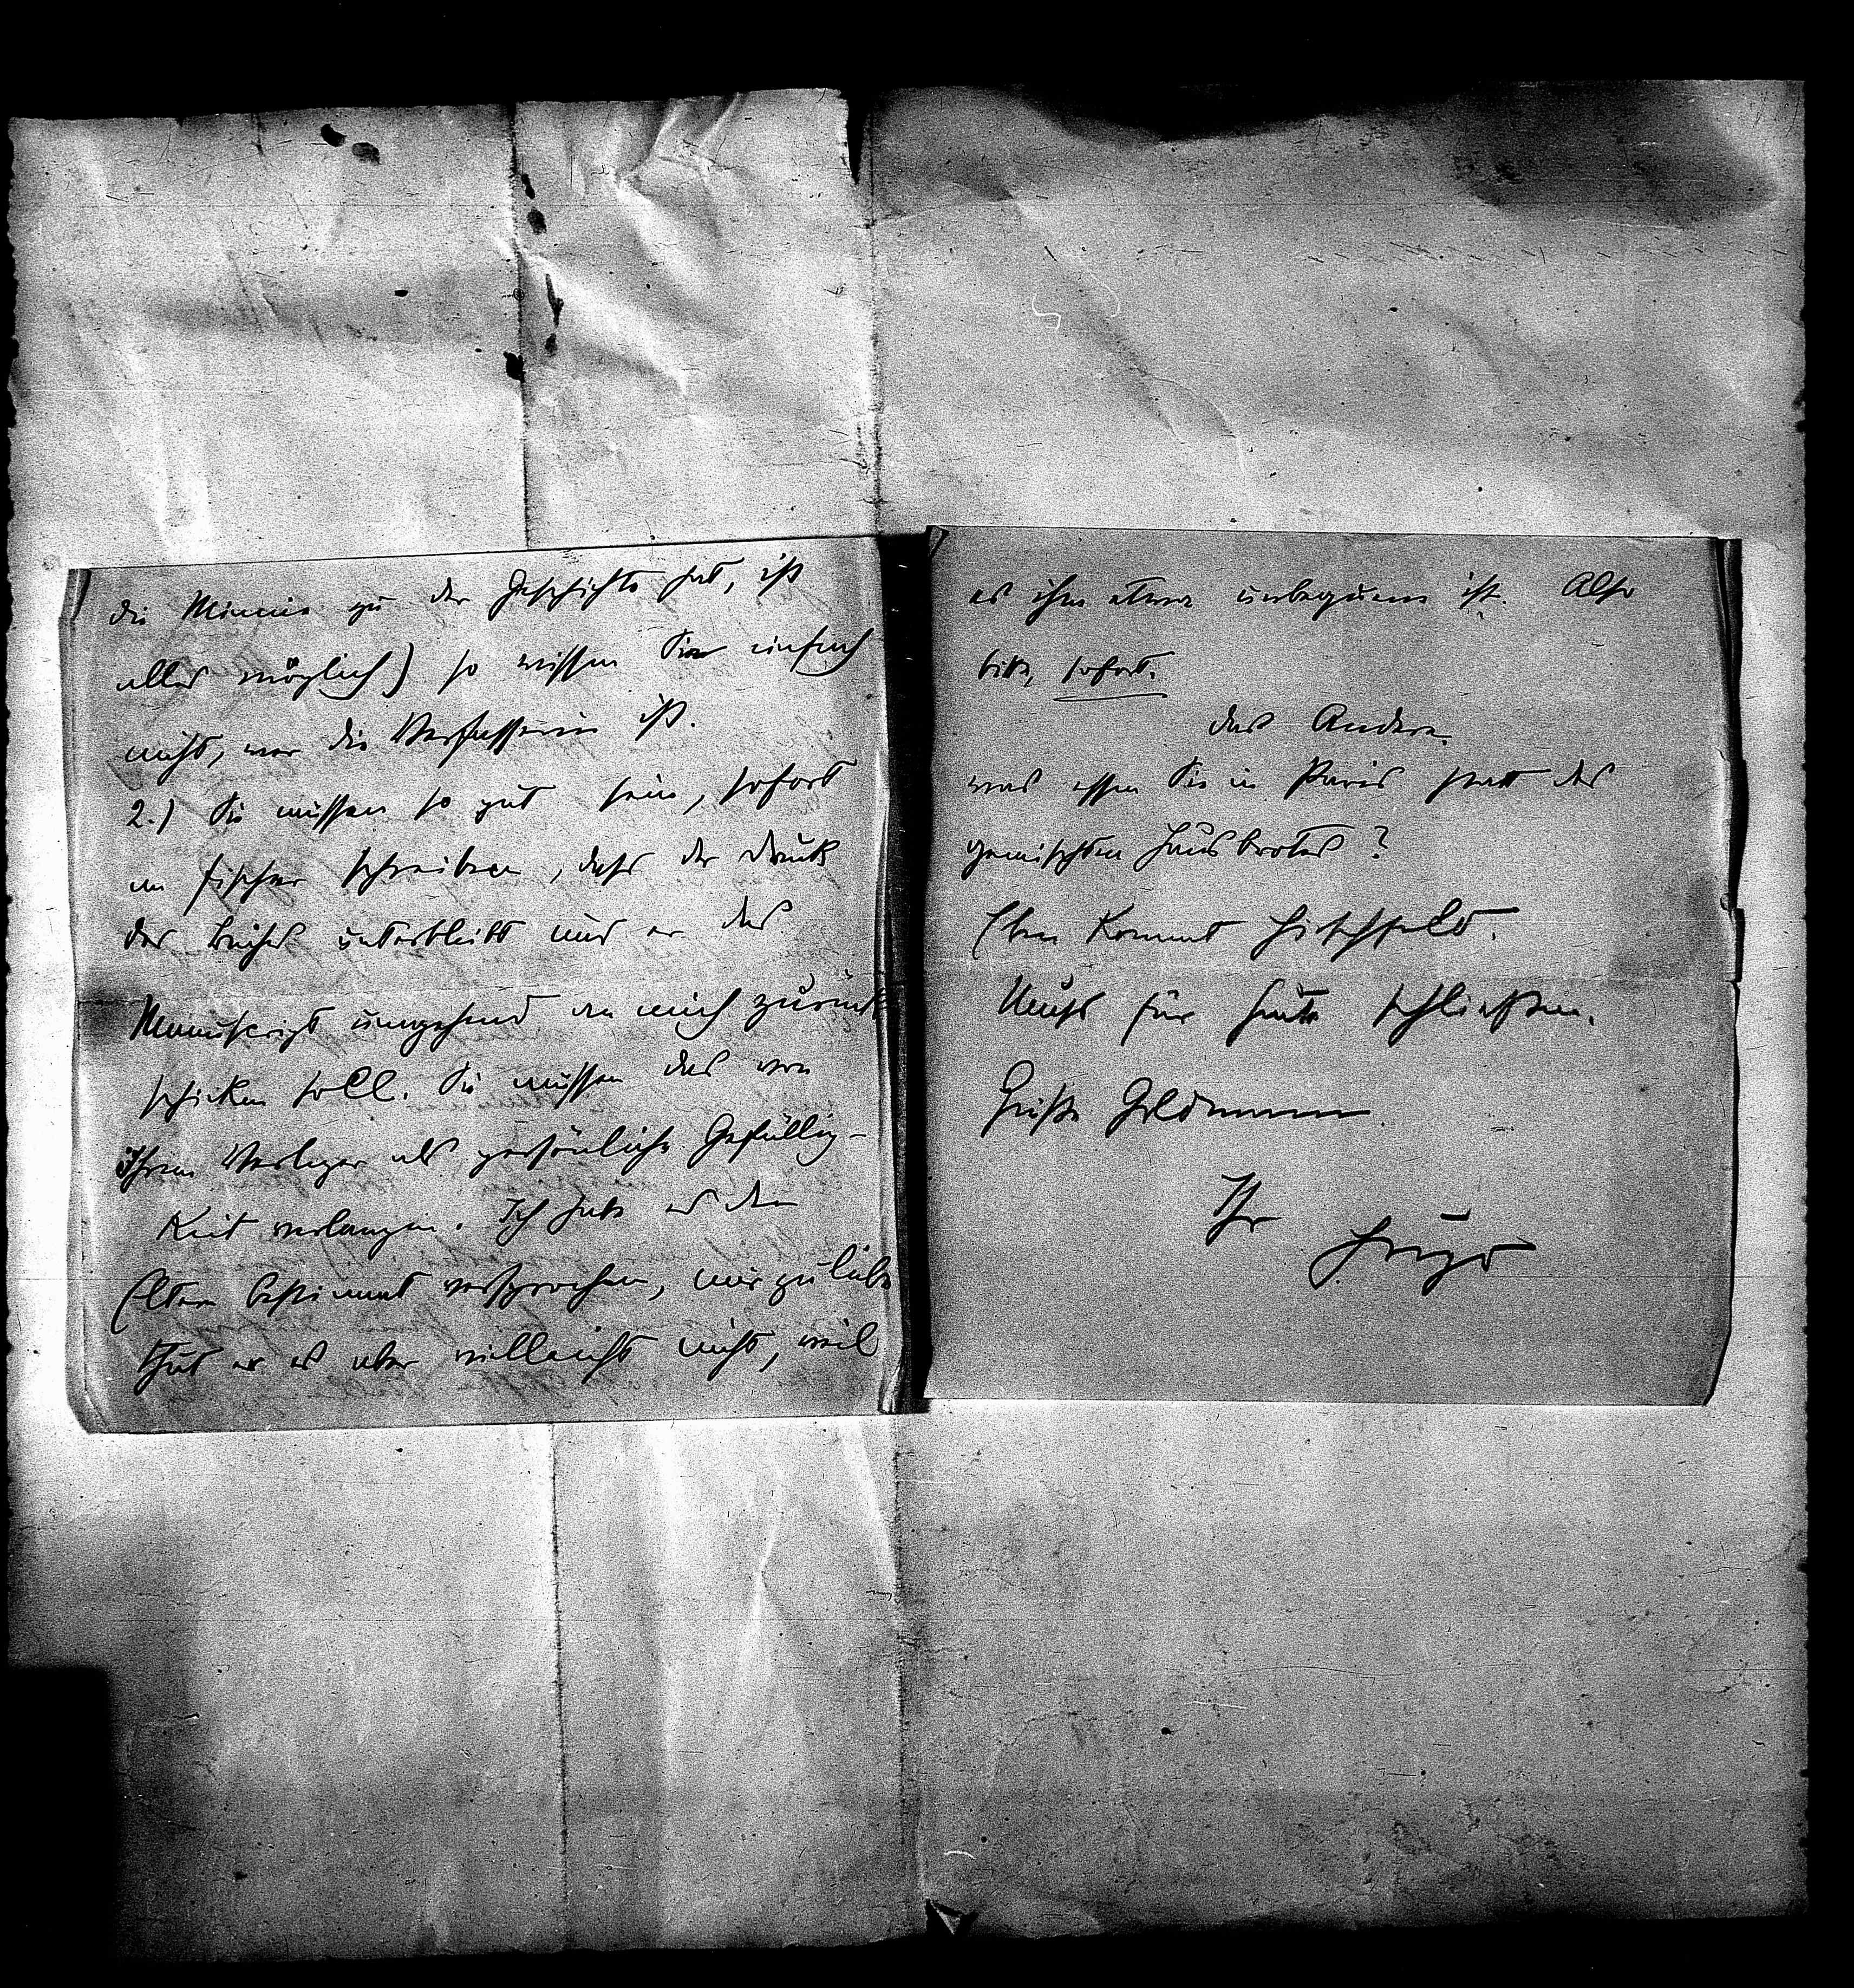 die Minnie zu der Geschichte hat, ist
alles möglich) so wissen Sie einfach
nicht, wer die Verfasserin ist.
2.) Sie müssen so gut sein, sofort
an Fischer schreiben, dass der Druck
des Buches unterbleibt und er das
Manuscript umgehend an mich zurück
schicken soll. Sie müssen das von
Ihrem Verleger als persönliche Gefällig-
keit verlangen. Ich hab es den
Eltern bestimmt versprochen, mir zuliebe
thut er es aber vielleicht nicht, weil
es ihm etwa unbequem ist. Also
bitte, sofort.
das Andere.
was essen Sie in Paris statt des
gemischten Hausbrotes?
Eben kommt Hirschfeld.
Muss für heute schließen.
Grüße Goldmann.
Ihr
Hugo